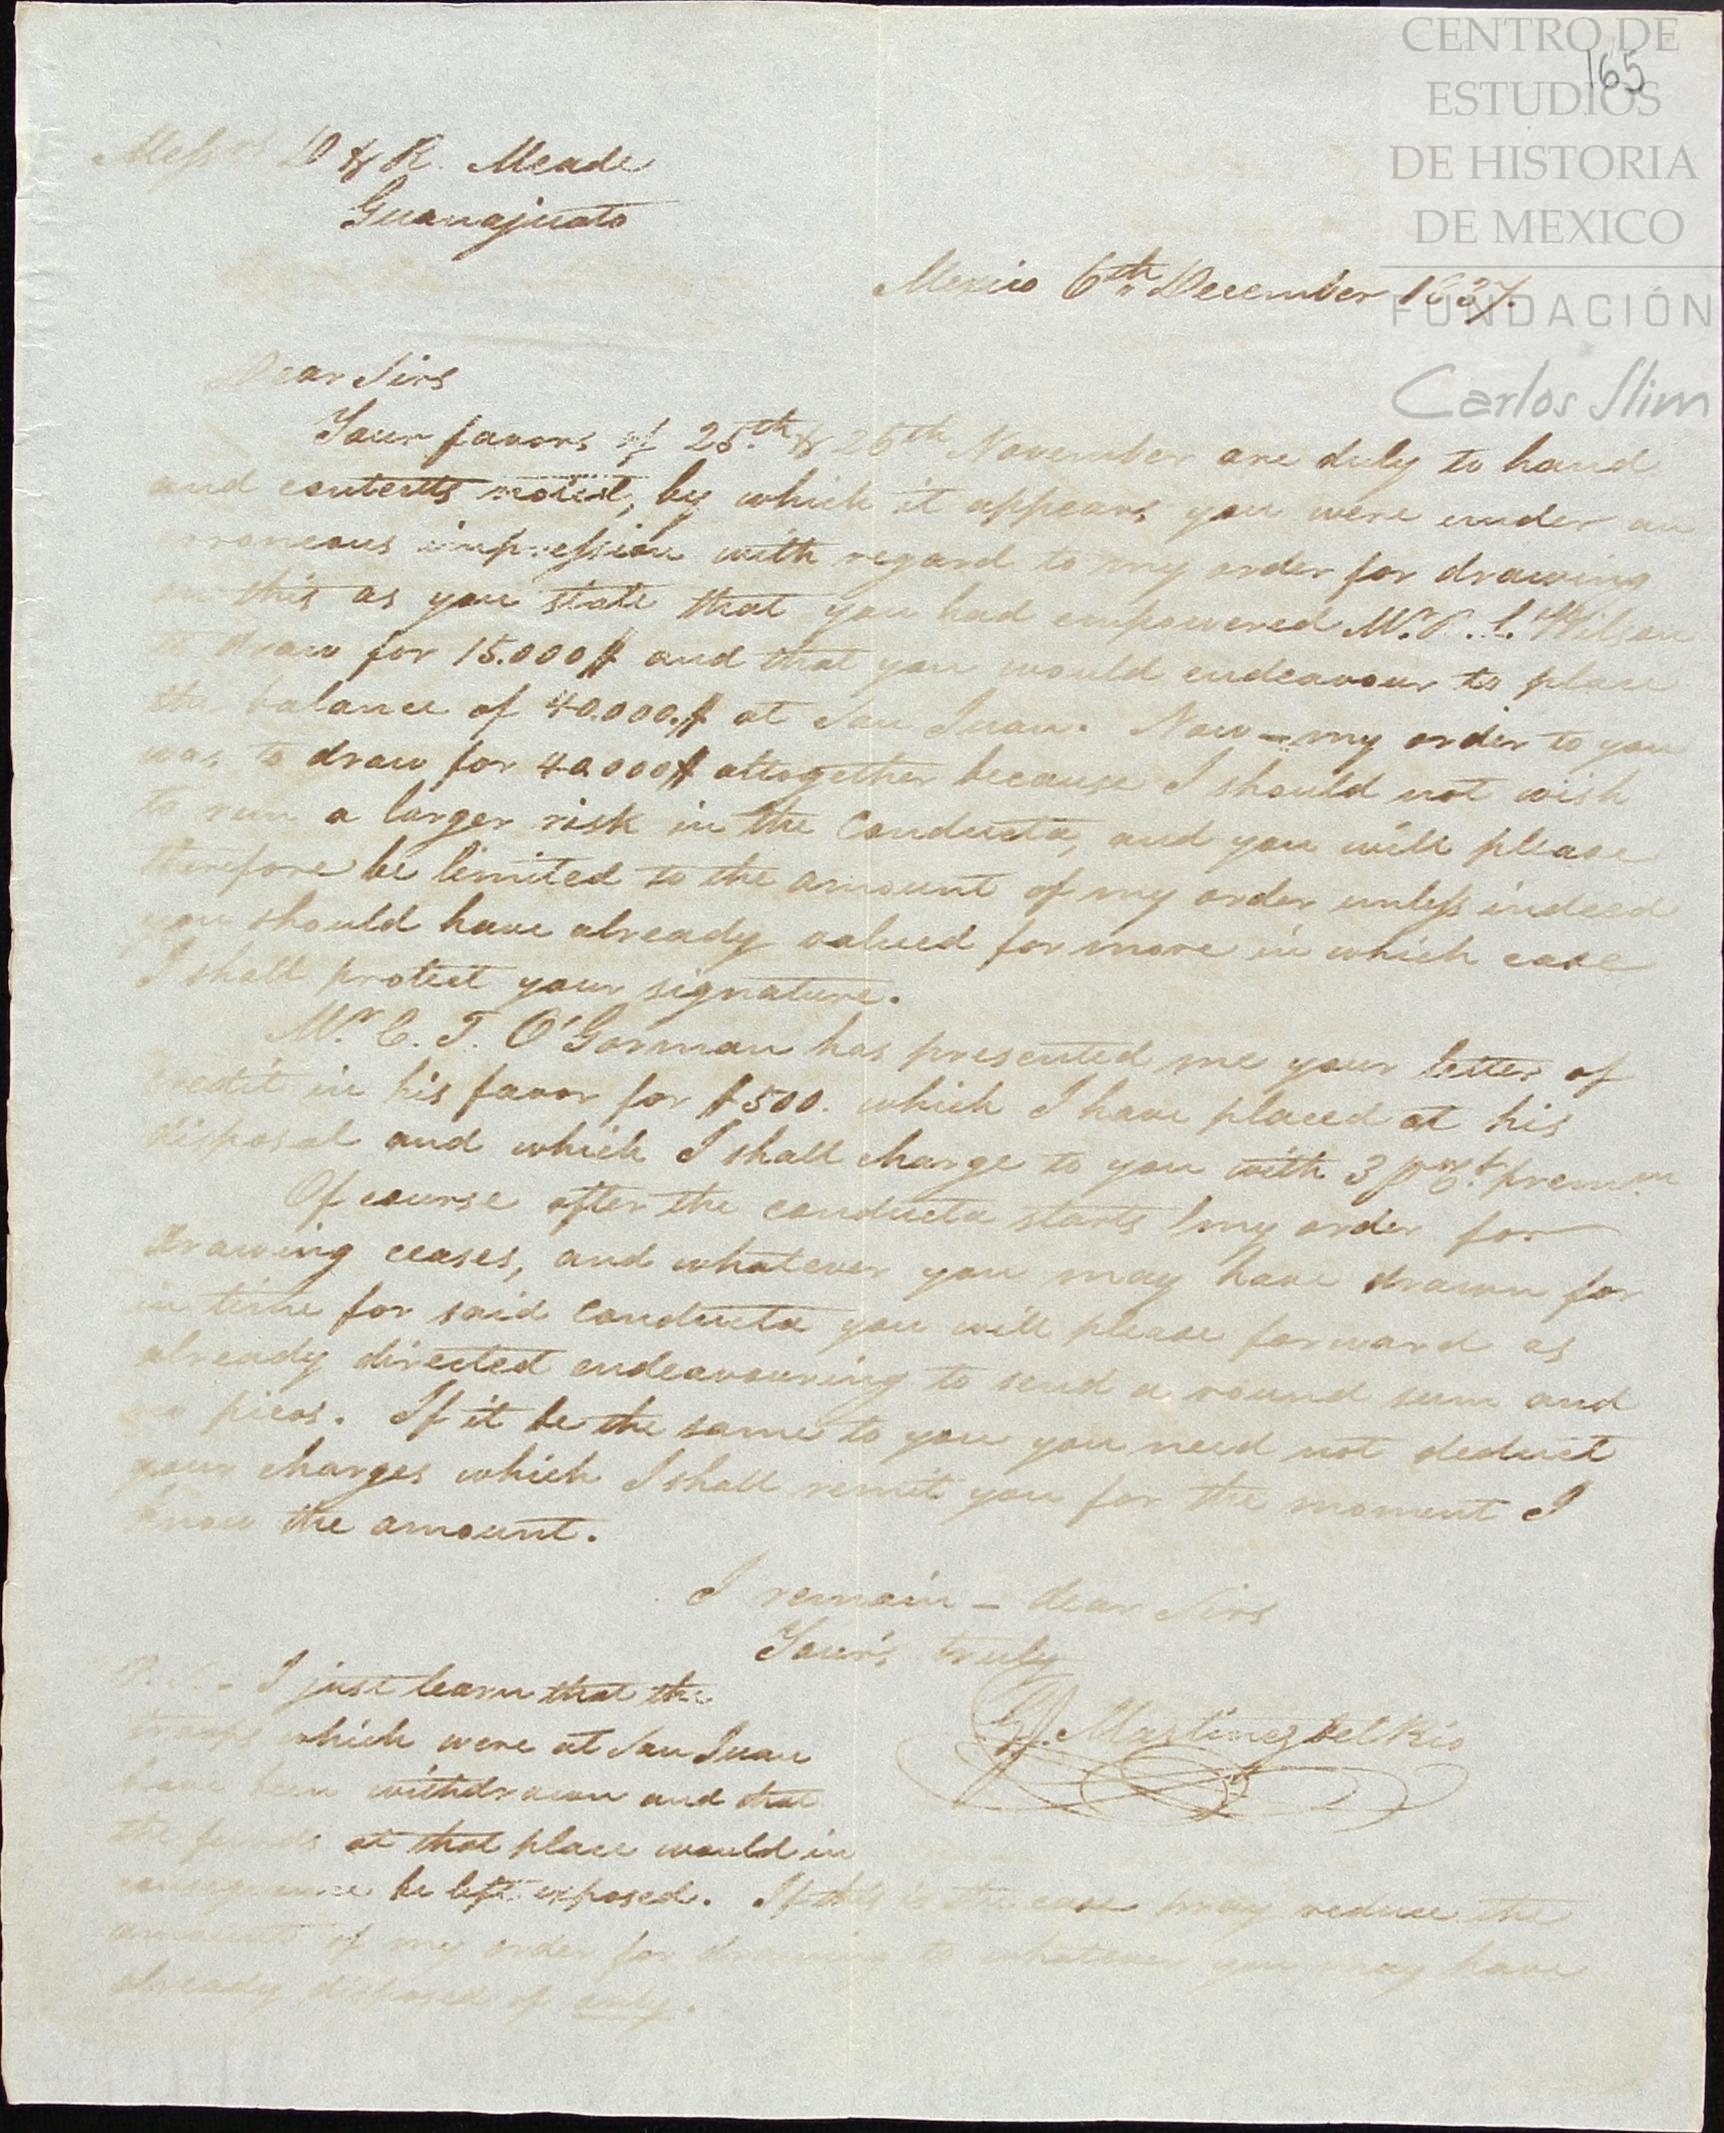 CENTRO DE
ESTUDIOS
DE HISTORIA
DE MEXICO
FUNDACIÓN
Carlos Slim
165
Messrs D & R. Meade
Guanajuato
Mexico 6th December 1837.
Dear Sirs
Your favors of 25th & 26th November are duly to hand
and contents noted, by which it appears you were under an
erroneous impression with regard to my order for drawing
on this as you state that you had empowered Mr. Wilson
to draw for 15.000$ and that you would endeavour to place
the balance of 40.000.$ at San Juan. Now – my order to you
was to draw for 40000$ altogether because I should not wish
to run a larger risk in the Conducta, and you will please
therefore be limited to the amount of my order unless indeed
you should have already valued for more in which case
I shall protect your signature.
Mr. C. T. O'Gorman has presented me your letter of
credit in his favor for $500. which I have placed at his
disposal and which I shall charge to you with 3 pr Ct. premm
Of course after the conducta starts my order for
drawing ceases, and whatever you may have drawn for
in time for said Conducta you will please forward as
already directed endeavouring to send a round sum and
no picos. If it be the same to you you need not deduct
your charges which I shall remit you for the moment I
know the amount.
I remain – dear Sirs
Your's truly
G. J. Martinez del Rio
P.S. – I just learn that the
troops which were at San Juan
have been withdrawn and that
the funds at that place would in
consequence be left exposed. If this is the case you may reduce the
amount of my order for drawing to whatever you may have
already disposed of only.